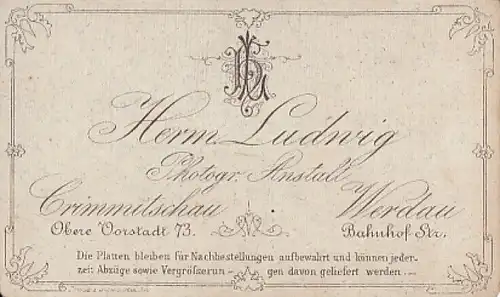 HL
Herm. Ludwig
Photogr. Anstalt
Crimmitschau Werdau
Obere Vorstadt 73. Bahnhof Str.
Die Platten bleiben für Nachbestellungen aufbewahrt und können jeder-
zeit Abzüge sowie Vergröfzerun- gen davon geliefert werden.